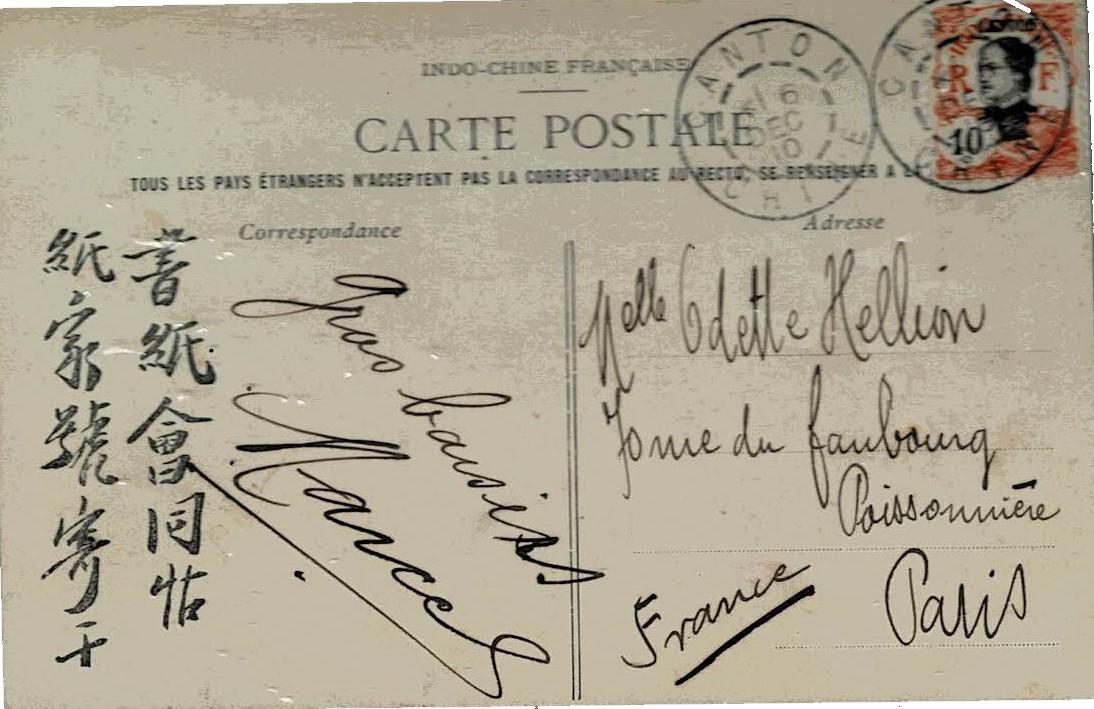 INDO-CHINE FRANÇAISE
CARTE POSTALE
TOUS LES PAYS ÉTRANGERS N'ACCEPTENT PAS LA CORRESPONDANCE AU RECTO, SE RENSEIGNER A LA
Correspondance
Adresse
CANTON
16
DEC
10
CHINE
CANTON
CHINE
R F
10
書紙會同帖
紙家號寄干
Gros baisers
Marcel
Melle Odette Hellion
70 rue du faubourg
Poissonnière
Paris
France